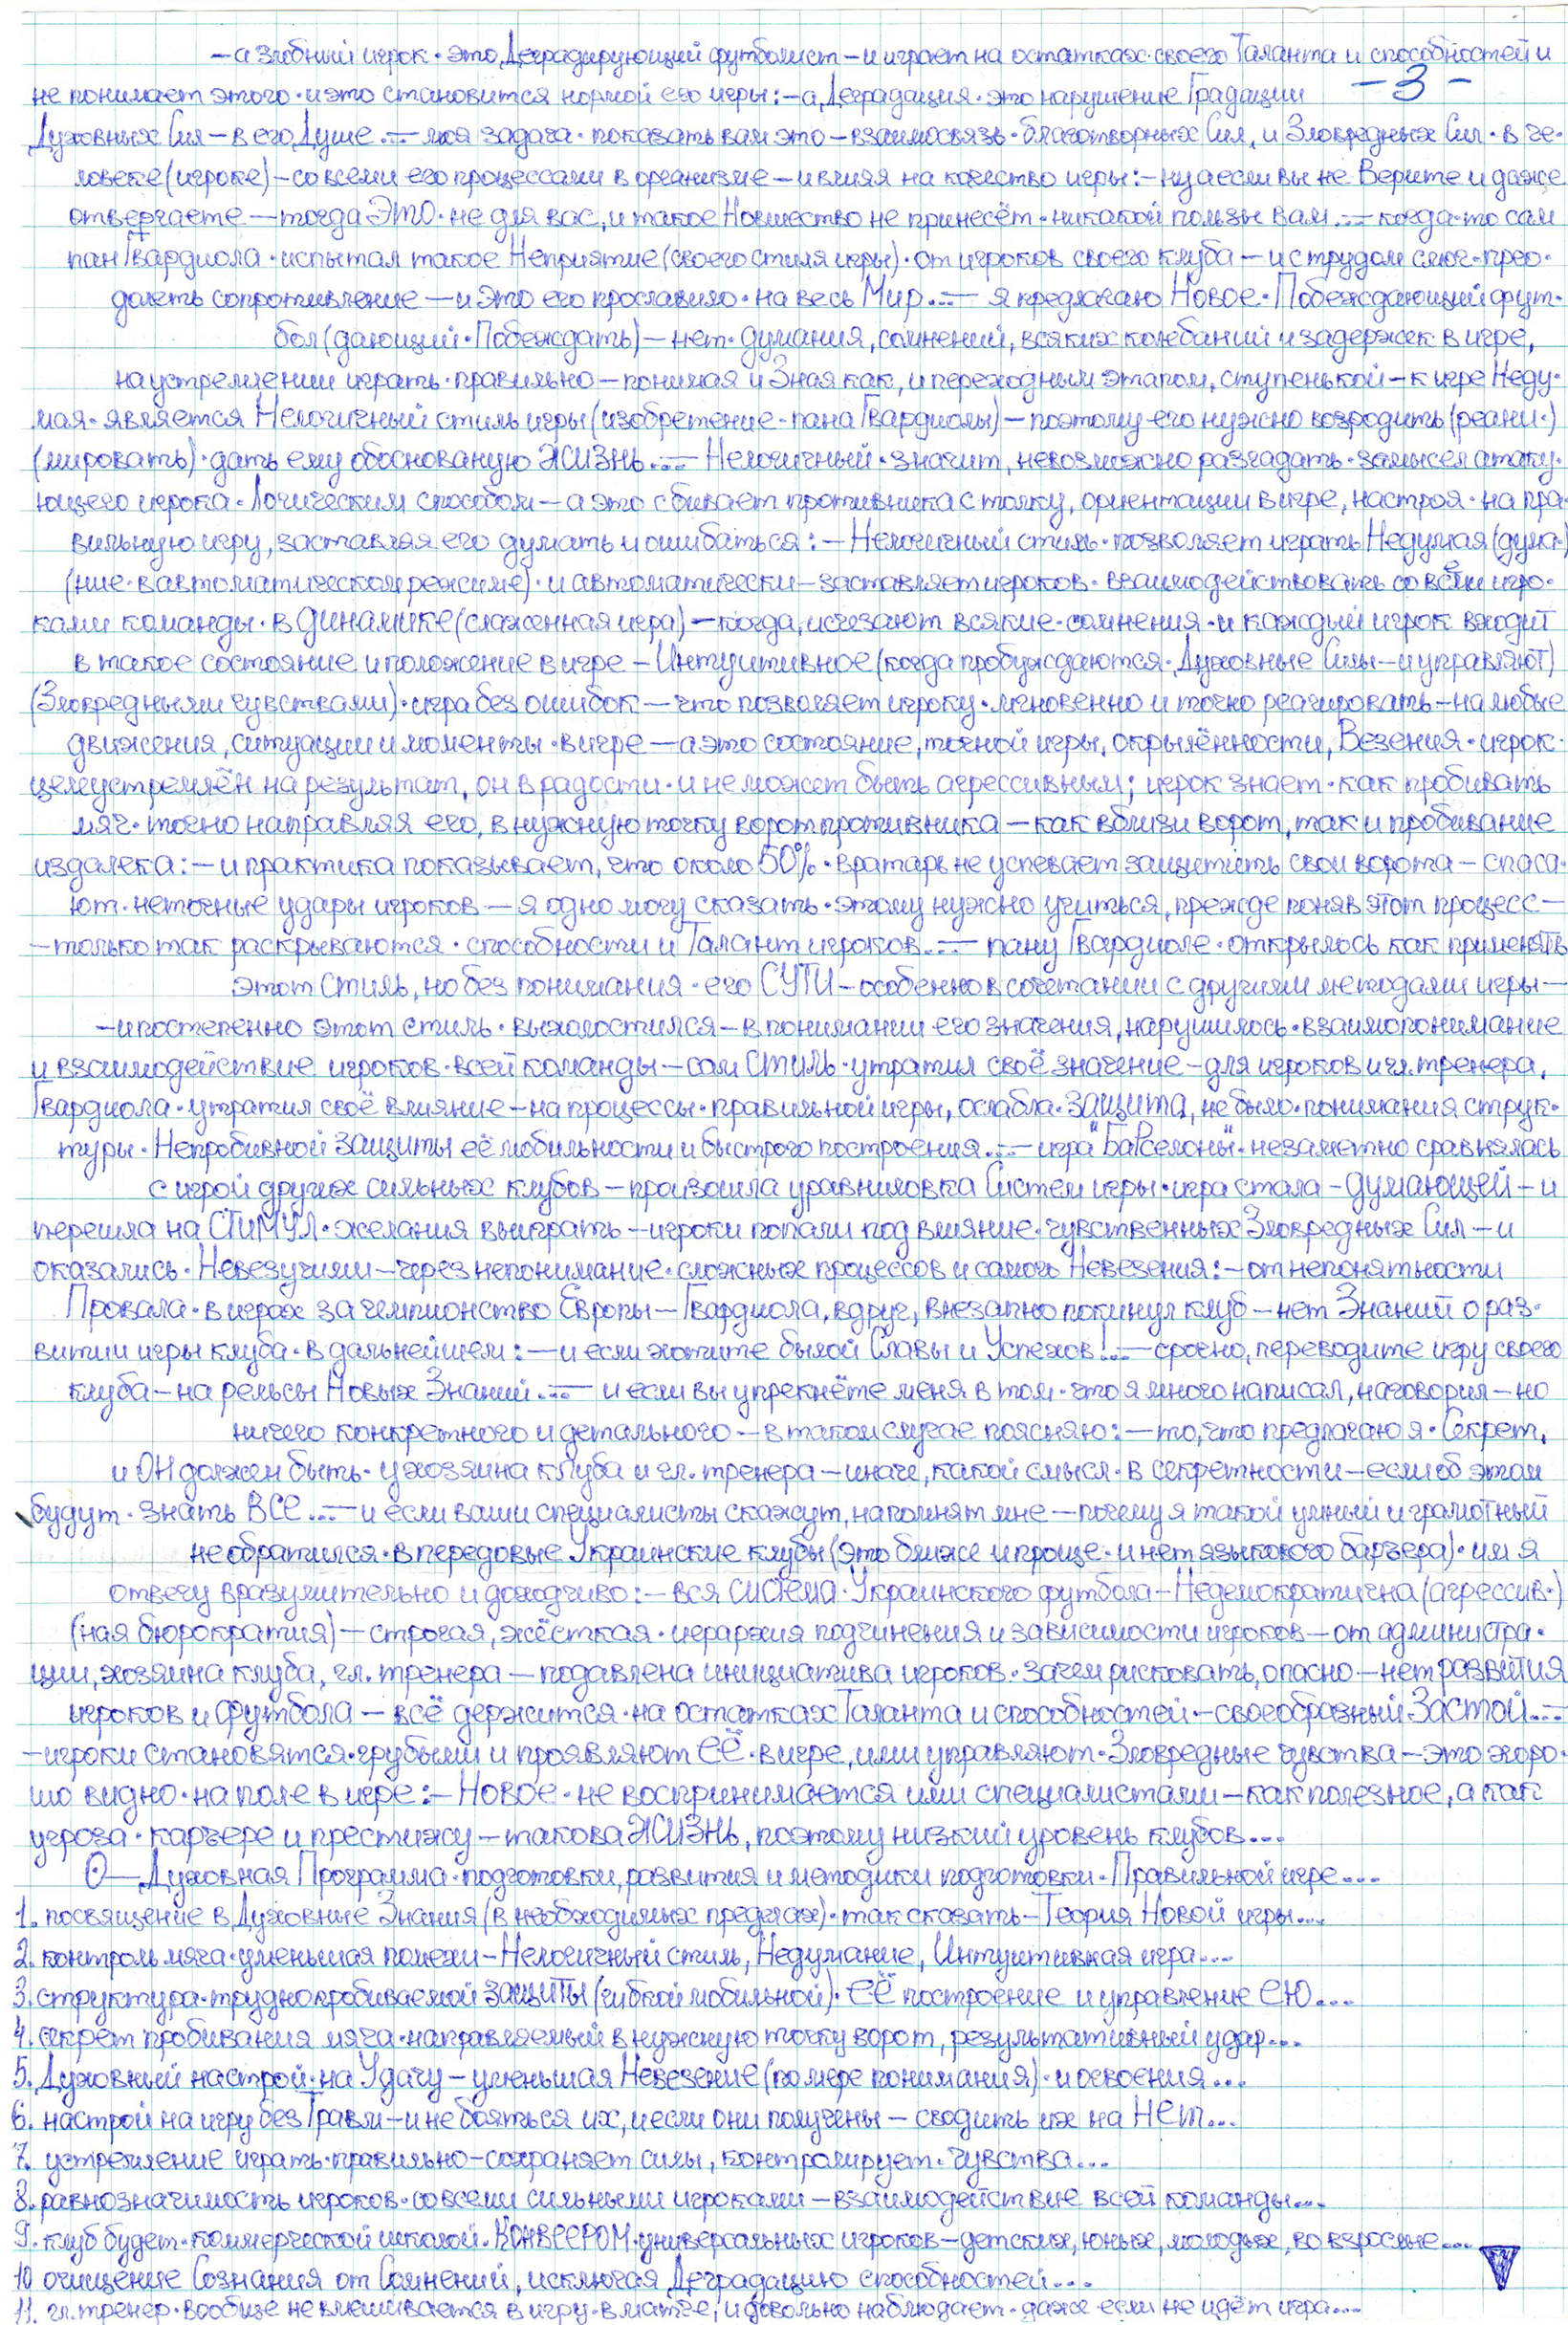 – а злобный игрок · это Деградирующий футболист – и играет на остатках своего Таланта и способностей и
– 3 –
не понимает этого · и это становится нормой его игры: – а Деградация · это нарушение Градации
Духовных Сил – в его Душе ...— моя задача · показать вам это – взаимосвязь · благотворных Сил, и Зловредных Сил · в че-
ловеке (игроке) – со всеми его процессами в организме – и влияя на качество игры: – ну а если вы не Верите и даже
отвергаете — тогда ЭТО · не для вас, и такое Новшество не принесёт · никакой пользы вам ...— когда-то сам
пан Гвардиола · испытал такое Неприятие (своего стиля игры) · от игроков своего клуба – и с трудом смог · прео-
долеть сопротивление — и это его прославило · на весь Мир ...— я предлагаю Новое · Побеждающий фут-
бол (дающий · Побеждать) – нет · думания, сомнений, всяких колебаний и задержек в игре,
на устремлении играть · правильно – понимая и Зная как, и переходным этапом, ступенькой – к игре Неду-
мая · является Нелогичный стиль игры (изобретение · пана Гвардиолы) – поэтому его нужно возродить (реани-)
(мировать) · дать ему обоснованую ЖИЗНЬ ...— Нелогичный · значит, невозможно разгадать · замысел атаку-
ющего игрока · Логическим способом – а это сбивает противника с толку, ориентации в игре, настроя · на пра-
вильную игру, заставляя его думать и ошибаться: – Нелогичный стиль · позволяет играть Недумая (дума-)
(ние · в автоматическом режиме) · и автоматически – заставляет игроков · взаимодействовать со всеми игро-
ками команды · в динамике (слаженная игра) – когда, исчезают всякие · сомнения · и каждый игрок входит
в такое состояние и положение в игре – Интуитивное (когда пробуждаются · Духовные Силы – и управляют)
(Зловредными чувствами) · игра без ошибок — что позволяет игроку · мгновенно и точно реагировать – на любые
движения, ситуации и моменты · в игре — а это состояние, точной игры, окрылённости, Везения · игрок ·
целеустремлён на результат, он в радости · и не может быть агрессивным; игрок знает · как пробивать
мяч · точно направляя его, в нужную точку ворот противника – как вблизи ворот, так и пробивание
издалека: – и практика показывает, что около 50% · вратарь не успевает защитить свои ворота – спаса-
ют · неточные удары игроков — я одно могу сказать · этому нужно учиться, прежде поняв этот процесс –
– только так раскрываются · способности и Талант игроков ...— пану Гвардиоле · открылось как применять
этот стиль, но без понимания · его СУТИ – особенно в сочетании с другими методами игры —
– и постепенно этот стиль · выхолостился – в понимании его значения, нарушилось · взаимопонимание
и взаимодействие игроков · всей команды – сам СТИЛЬ · утратил своё значение – для игроков и гл. тренера,
Гвардиола · утратил своё влияние – на процессы · правильной игры, ослабла · защита, не было · понимания струк-
туры · Непробивной защиты её мобильности и быстрого построения ...— игра "Барселоны" · незаметно сравнялась
с игрой других сильных клубов – произошла уравниловка Систем игры · игра стала – думающей – и
перешла на СТИМУЛ · желания выиграть – игроки попали под влияние · чувственных Зловредных Сил – и
оказались · Невезучими – через непонимание · сложных процессов и самого Невезения: – от непонятности
Провала · в играх за чемпионство Европы – Гвардиола, вдруг, внезапно покинул клуб – нет Знаний о раз-
витии игры клуба · в дальнейшем: — и если хотите былой Славы и Успехов! ...— срочно, переводите игру своего
клуба – на рельсы Новых Знаний ...— и если вы упрекнёте меня в том · что я много написал, наговорил – но
ничего конкретного и детального – в таком случае поясняю: – то, что предлагаю я · Секрет,
и ОН должен быть · у хозяина клуба и гл. тренера – иначе, какой смысл · в секретности – если об этом
будут · знать ВСЕ ...— и если ваши специалисты скажут, напомнят мне — почему я такой умный и грамотный
не обратился · в передовые Украинские клубы (это ближе и проще · и нет языкового барьера) · им я
отвечу вразумительно и доходчиво: – вся система · Украинского футбола – Недемократична (агрессив-)
(ная бюрократия) – строгая, жёсткая · иерархия подчинения и зависимости игроков – от администра-
ции, хозяина клуба, гл. тренера — подавлена инициатива игроков · зачем рисковать, опасно – нет развития
игроков и футбола – всё держится · на остатках Таланта и способностей – своеобразный Застой ...—
– игроки становятся · грубыми и проявляют её · в игре, ими управляют · Зловредные чувства – это хоро-
шо видно · на поле в игре: – Новое · не воспринимается ими специалистами – как полезное, а как
угроза · карьере и престижу – такова ЖИЗНЬ, поэтому низкий уровень клубов ...
О — Духовная Программа · подготовки, развития и методики подготовки · Правильной игре ...
1. посвящение в Духовные Знания (в необходимых пределах) · так сказать – Теория Новой игры ...
2. контроль мяча · уменьшая помехи – Нелогичный стиль, Недумание, Интуитивная игра ...
3. структура · труднопробиваемой защиты (гибкой мобильной) · её построение и управление ею ...
4. секрет пробивания мяча · направляемый в нужную точку ворот, результативный удар ...
5. Духовный настрой · на Удачу – уменьшая Невезение (по мере понимания) · и освоения ...
6. настрой на игру без Травм – и не бояться их, и если они получены – сводить их на Нет ...
7. устремление играть · правильно – сохраняет силы, контролирует · чувства ...
8. равнозначимость игроков · со всеми сильными игроками – взаимодействие всей команды ...
9. клуб будет · коммерческой школой · КОНВЕЕРОМ · универсальных игроков – детских, юных, молодых, во взрослые ...
10 очищение Сознания от Сомнений, исключая Деградацию способностей ...
11. гл. тренер · вообще не вмешивается в игру · в матче, и довольно наблюдает · даже если не идёт игра ...